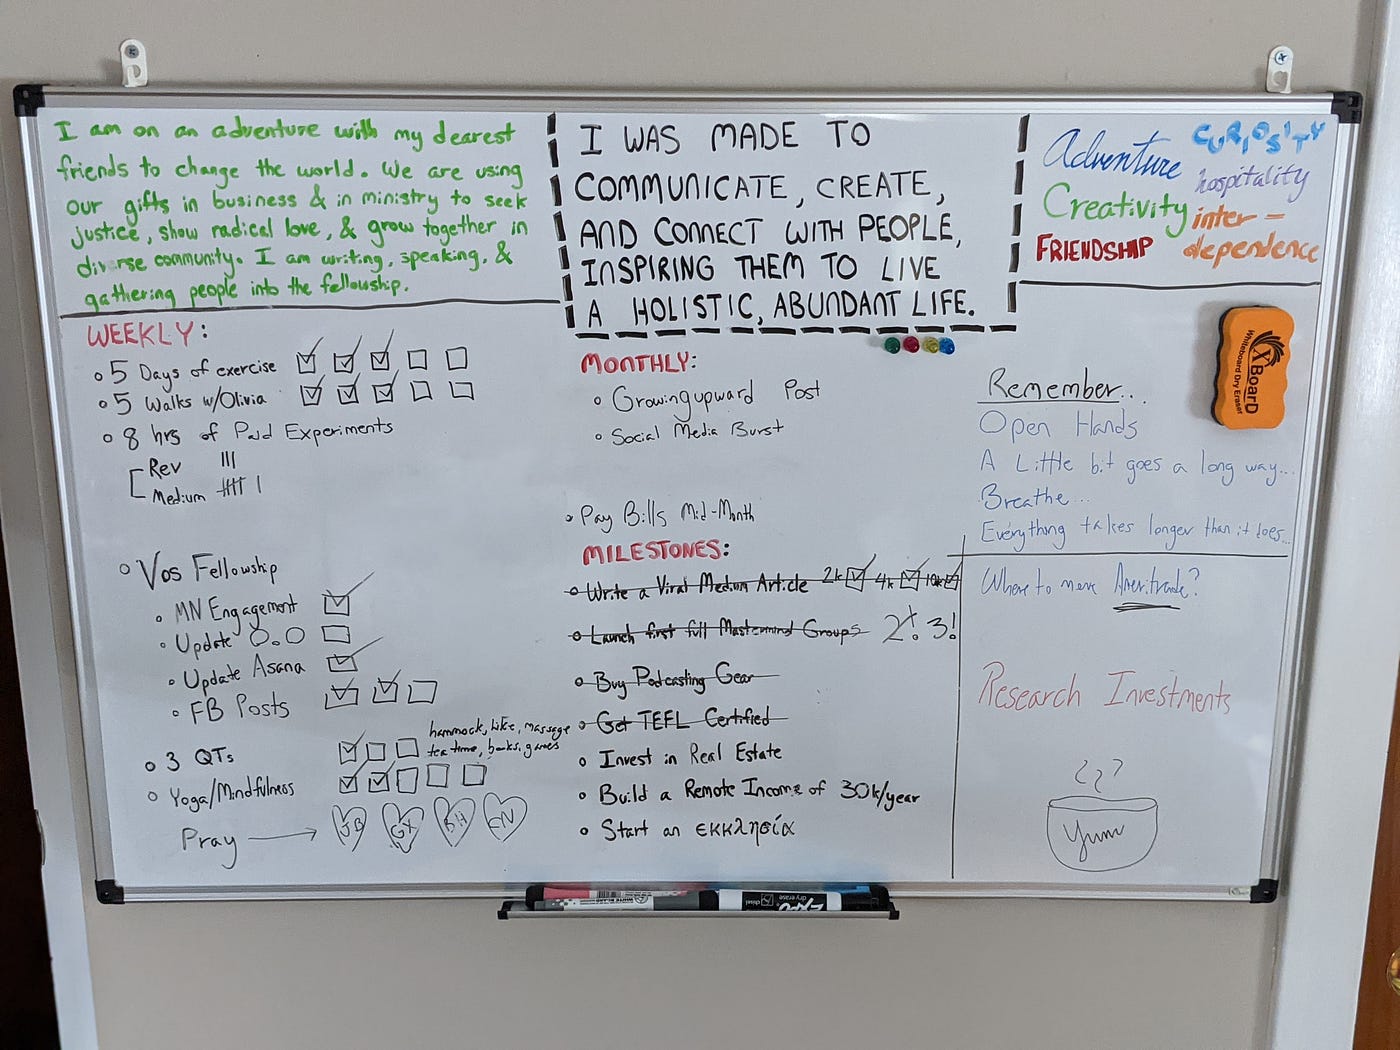 I am on an adventure with my dearest
friends to change the world. We are using
our gifts in business & in ministry to seek
justice, show radical love, & grow together in
diverse community. I am writing, speaking, &
gathering people into the fellowship.
I WAS MADE TO
COMMUNICATE, CREATE,
AND CONNECT WITH PEOPLE,
INSPIRING THEM TO LIVE
A HOLISTIC, ABUNDANT LIFE.
Adventure
CURIOSITY
hospitality
Creativity
inter-
dependence
FRIENDSHIP
WEEKLY:
5 Days of exercise
5 Walks w/Olivia
8 hrs of Paid Experiments
Rev
Medium
Vos Fellowship
MN Engagement
Update O.O
Update Asana
FB Posts
3 QTs
hammock, hike, massage
tea time, books, games
Yoga/Mindfulness
Pray
JB
GX
BH
MONTHLY:
Growingupward Post
Social Media Burst
Pay Bills Mid-Month
MILESTONES:
Write a Viral Medium Article 2k 4k 10k
Launch first full Mastermind Groups 2! 3!
Buy Podcasting Gear
Get TEFL Certified
Invest in Real Estate
Build a Remote Income of 30k/year
Start an εκκλησία
XBoarD
Whiteboard Dry Eraser
Remember...
Open Hands
A Little bit goes a long way...
Breathe...
Everything takes longer than it does...
Where to move Ameritrade?
Research Investments
Yum
EXPO
dry erase
chisel